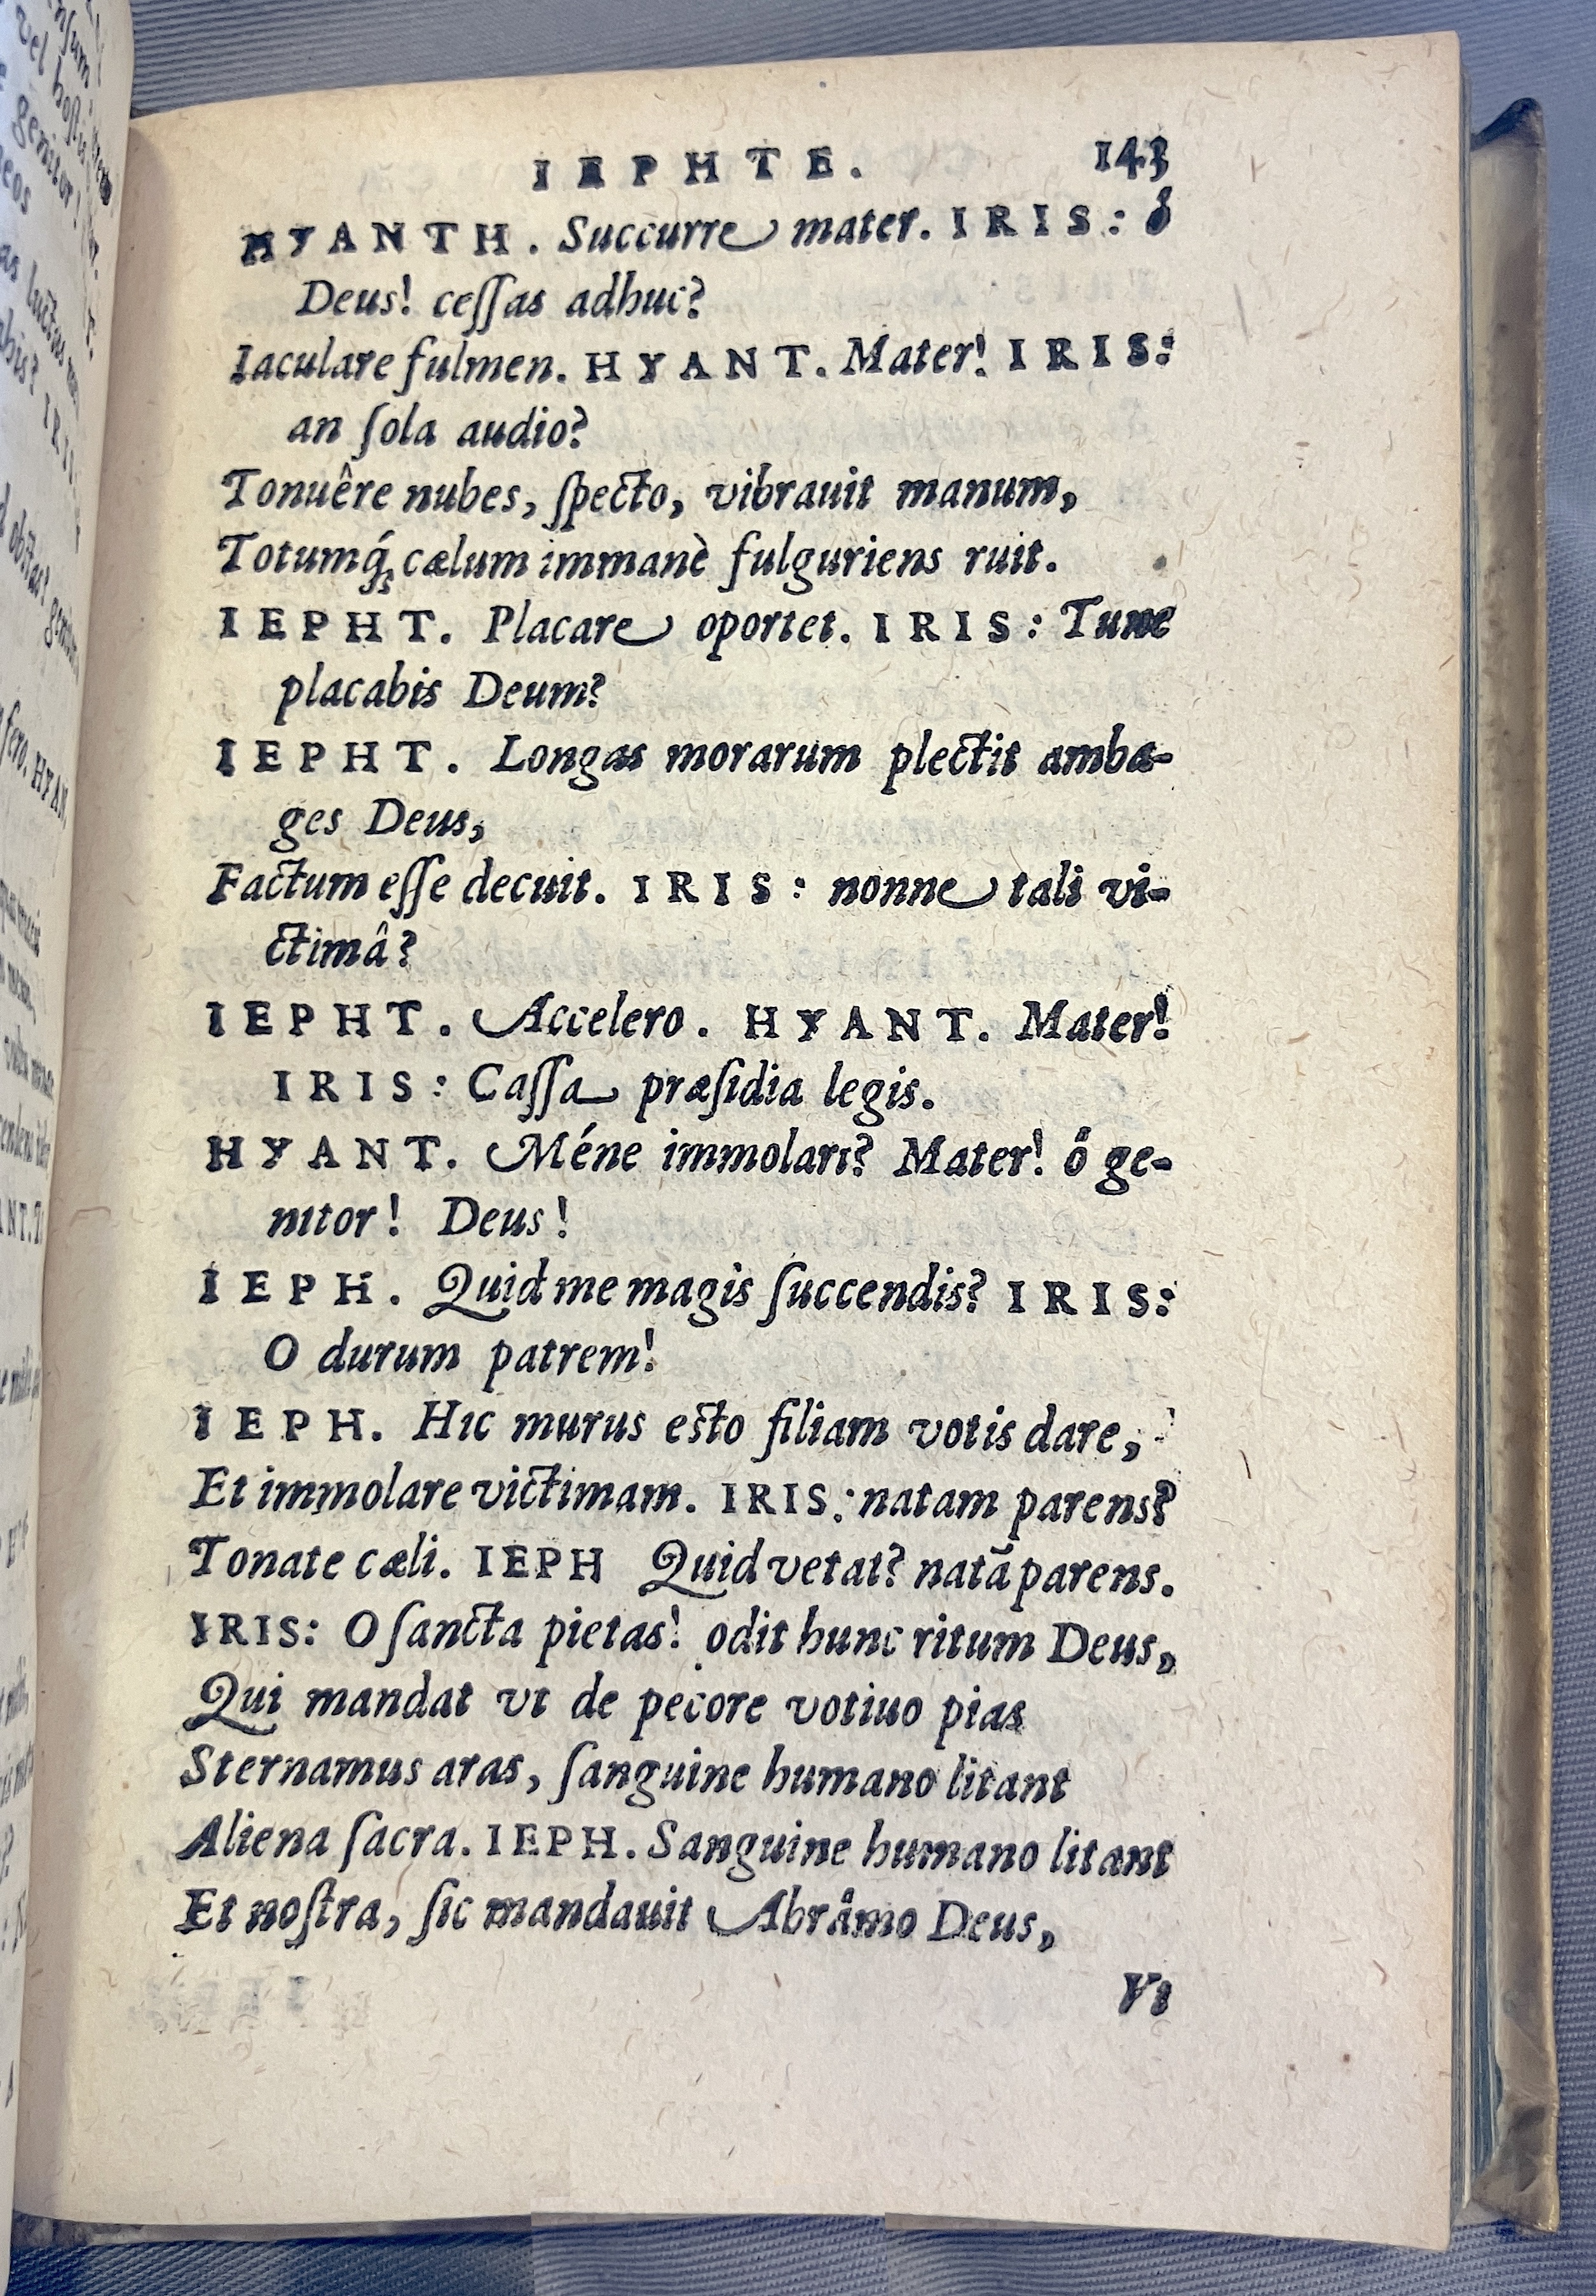 IEPHTE. 143
HYANTH. Succurre mater. IRIS: ô
Deus! ceſſas adhuc?
Iaculare fulmen. HYANT. Mater! IRIS:
an ſola audio?
Tonuêre nubes, ſpecto, vibrauit manum,
Totumq́; cælum immanè fulguriens ruit.
IEPHT. Placare oportet. IRIS: Tune
placabis Deum?
IEPHT. Longas morarum plectit amba-
ges Deus,
Factum eſſe decuit. IRIS: nonne tali vi-
ctimâ?
IEPHT. Accelero. HYANT. Mater!
IRIS: Caſſa præſidia legis.
HYANT. Méne immolari? Mater! ô ge-
nitor! Deus!
IEPH. Quid me magis ſuccendis? IRIS:
O durum patrem!
IEPH. Hic murus eſto filiam votis dare,
Et immolare victimam. IRIS: natam parens?
Tonate cæli. IEPH Quid vetat? natã parens.
IRIS: O ſancta pietas! odit hunc ritum Deus,
Qui mandat vt de pecore votiuo pias
Sternamus aras, ſanguine humano litant
Aliena ſacra. IEPH. Sanguine humano litant
Et noſtra, ſic mandauit Abrâmo Deus,
Vt